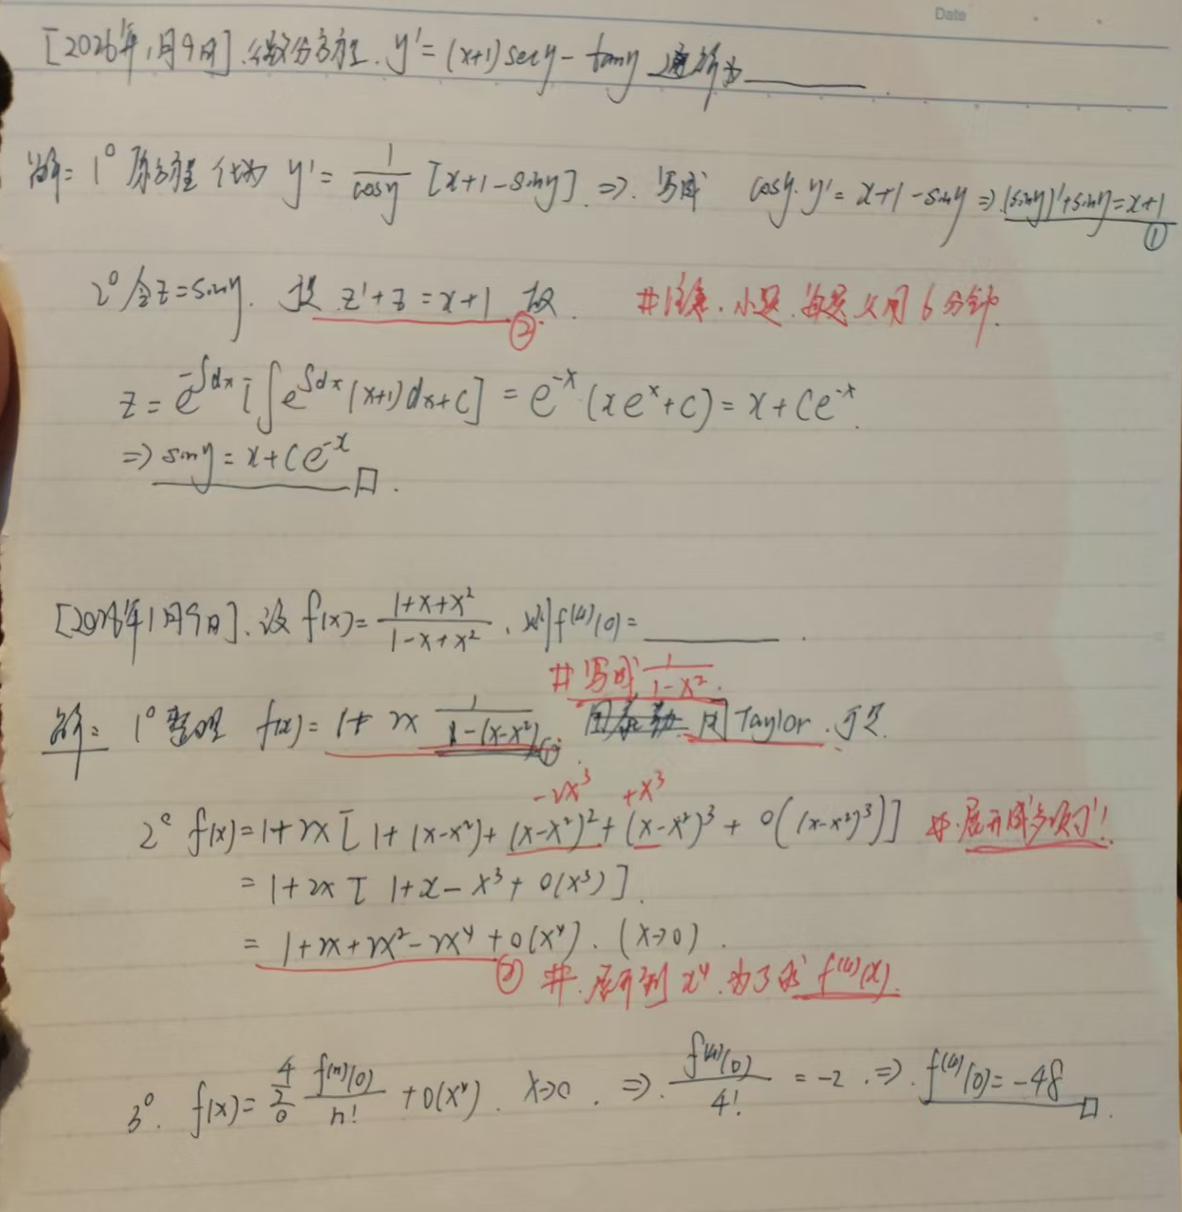 Date
[2026年1月9日].微分方程.y'=(x+1)secy-tany 通解为________.
解:1° 原方程化为 y'=\frac{1}{cosy}[x+1-siny].⇒.写成 cosy.y'=x+1-siny⇒.(siny)'+siny=x+1 ①
2°令z=siny. 故. #注意.小题.每题只用6分钟.
z'+z=x+1 ②
z=e^{-∫dx}[∫e^{∫dx}(x+1)dx+C]=e^{-x}(xe^x+C)=x+Ce^{-x}.
⇒siny=x+Ce^{-x} □.
[2026年1月9日].设f(x)=\frac{1+x+x²}{1-x+x²}.则f^{(4)}(0)=________.
#写成\frac{1}{1-x²}.
解:1°整理 f(x)=1+2x\frac{1}{1-(x-x²)}①. 用Taylor.
-2x³ +x³
2° f(x)=1+2x[1+(x-x²)+(x-x²)²+(x-x²)³+o((x-x²)³)] #.展开成'多项'!
=1+2x[1+x-x³+o(x³)].
=1+2x+2x²-2x⁴+o(x⁴).(x→0).
② #.展开到x⁴.为了求f^{(4)}(x).
3°. f(x)=\sum_{0}^{4}\frac{f^{(n)}(0)}{n!}+o(x⁴). x→0. ⇒.\frac{f^{(4)}(0)}{4!}=-2.⇒.f^{(4)}(0)=-48 □.